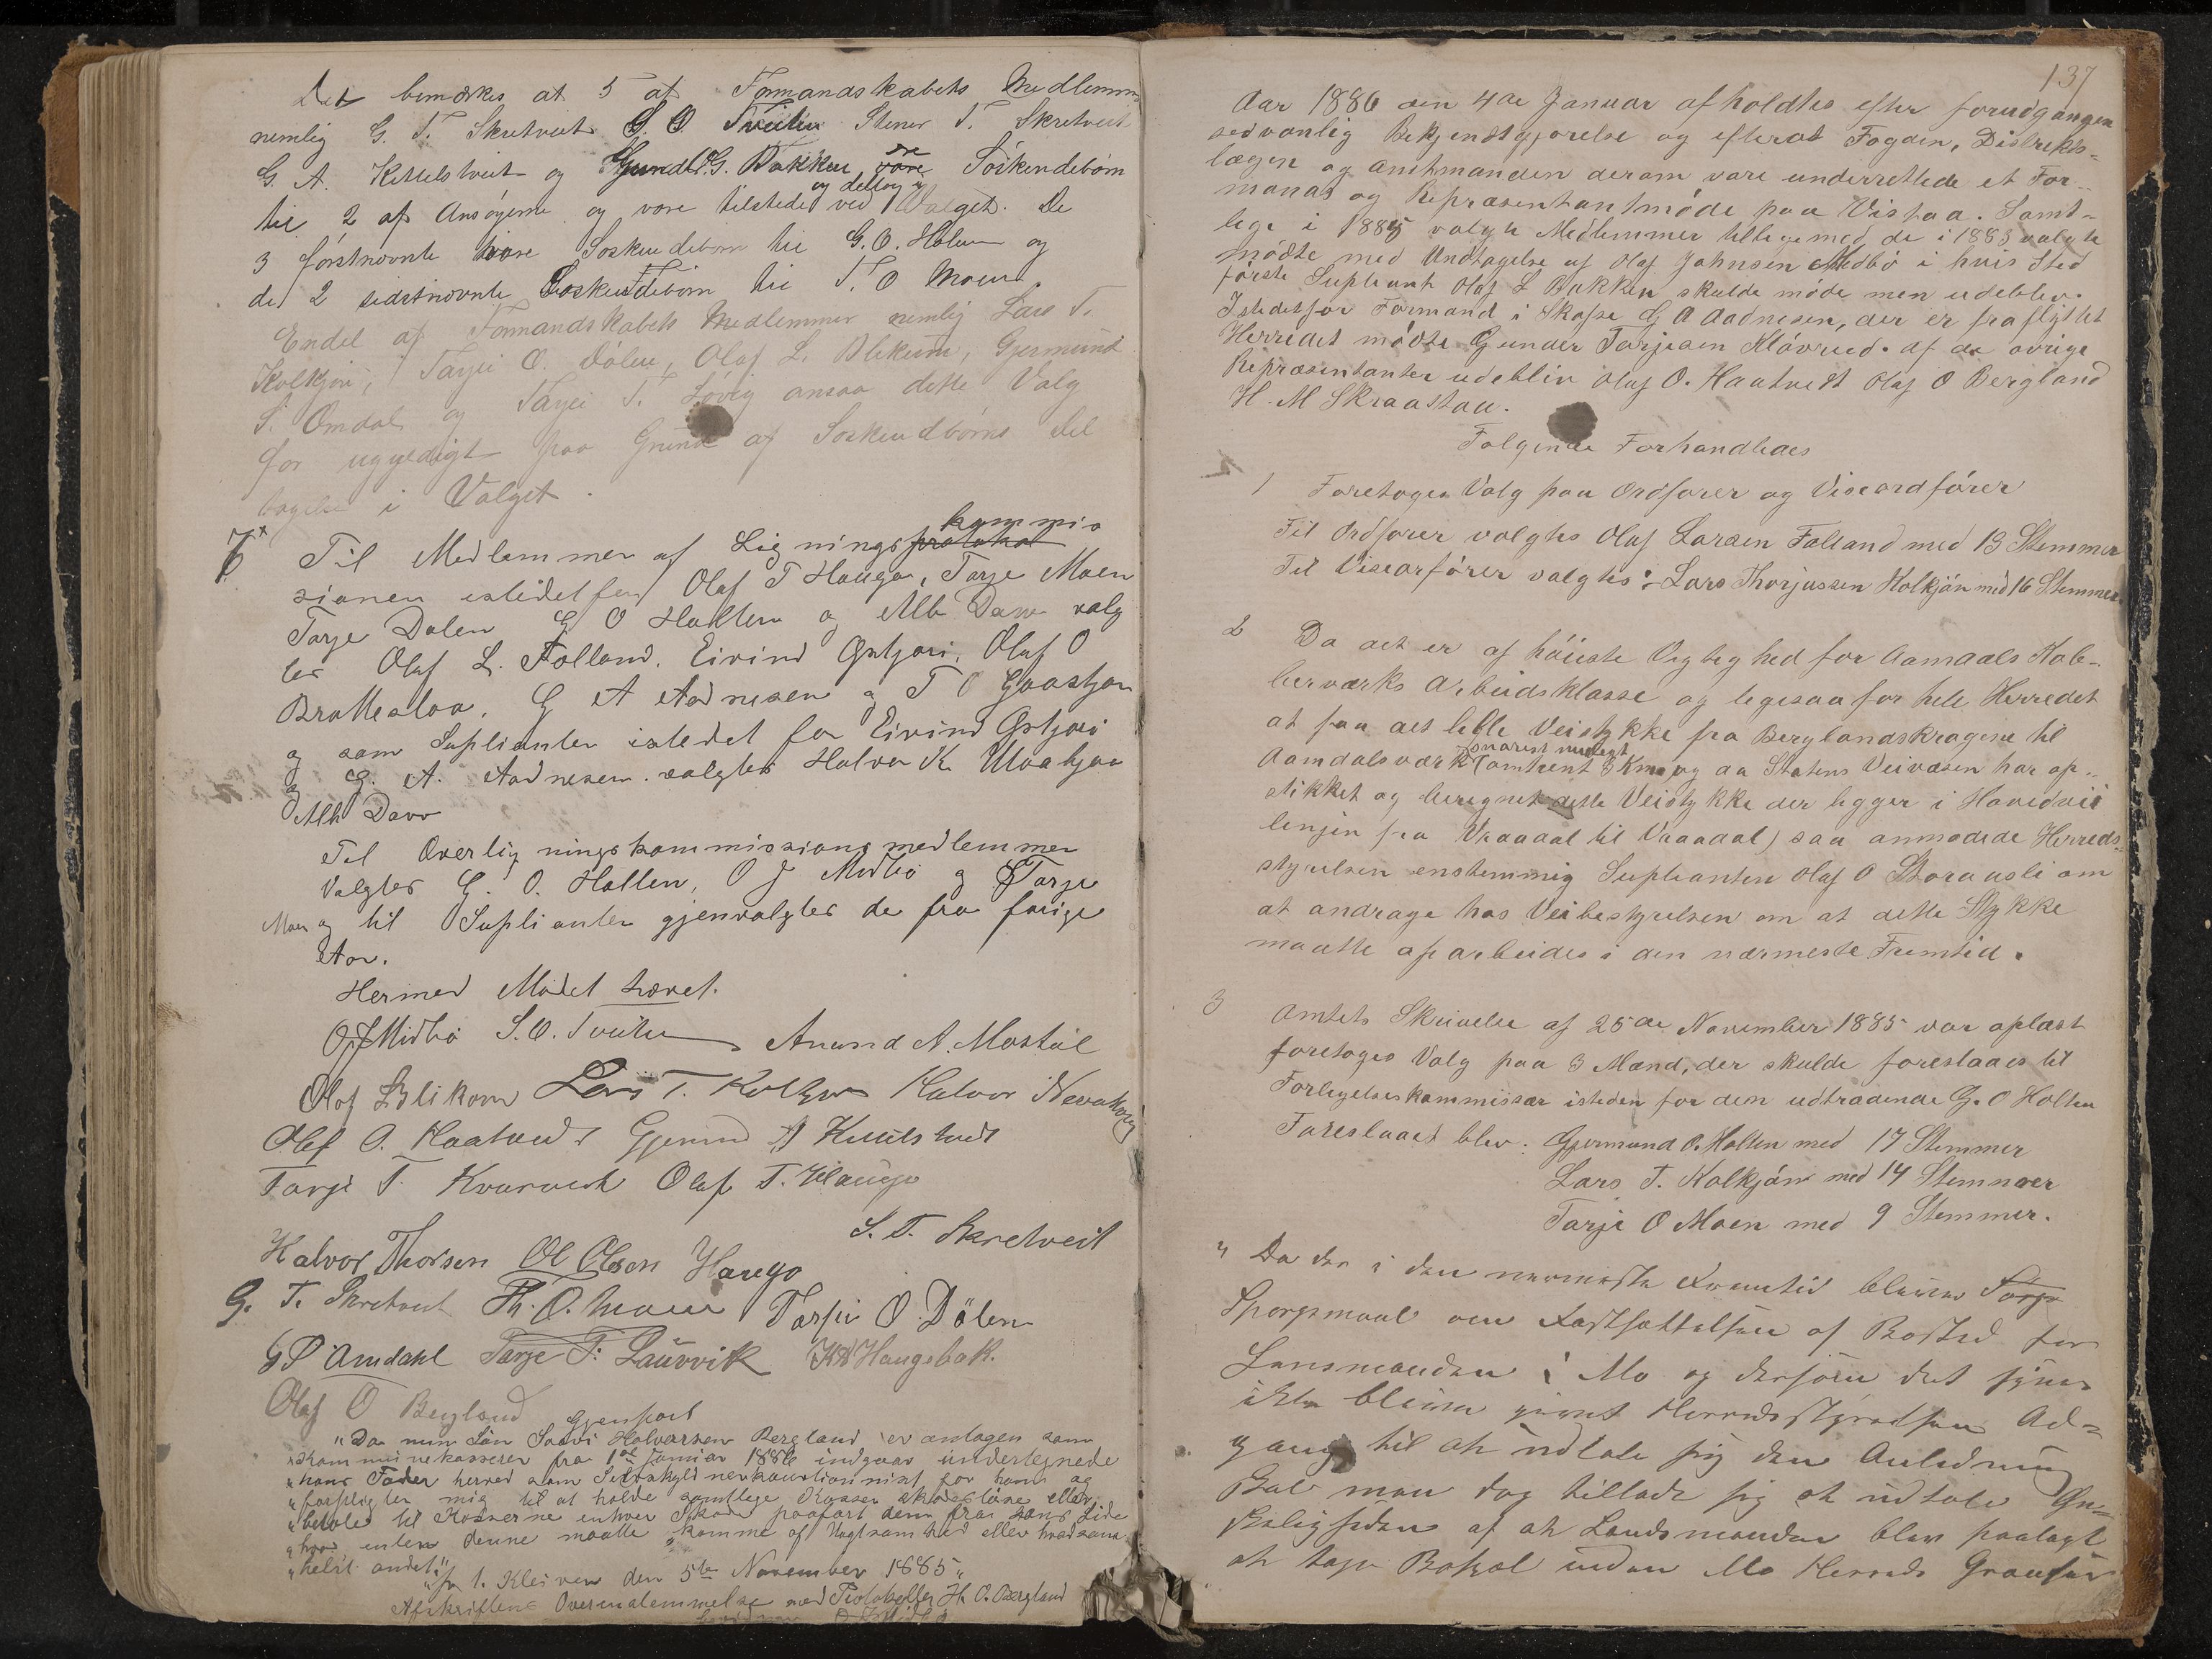 Det bemærkes at 5 af Formandskabets Medlemm
nemlig G. T. Skretveit S. O. Tveiten Stener T. Skretveit
G. A. Kittelstveit og Gjermd. G. Bakken vare ere Søskendebørn
til 2 af Ansøgerne og vare tilstede og deltog i ved Valget. De
3 førstnævnte vare Søskendebørn til G. O. Holten og
de 2 sidstnævnte Søskendebørn til T. O. Moen.
Endel af Formandskabets Medlemmer nemlig Lars T.
Kolkjøn, Tarjei O. Dølen, Olaf L. Blikom, Gjermund
S. Omdal og Tarjei T. Løvig ansaa dette Valg
for ugyldigt paa Grund af Søskendbørns Del
tagelse i Valget.
7 Til Medlemmer af Lignings protokol kommis
sionen istedetfor Olaf T Hauge, Tarje Moen
Tarje Dalen G O Holten og Alb Daw valg
tes Olaf L. Folland, Eivind Grtjøri, Olaf O
Brattestaa, G A Aadnesen og T O Gaastjøn
og som Suplianter istedet for Eivind Grtjøri
og G. A. Aadnesen valgtes Halvor K. Moakjøn
og Alb Daw
Til Overligningskommissionsmedlemmer
Valgtes G. O. Holten, O J Midbø og Tarje
Moen og til Suplianter gjenvalgtes de fra forige
Aar.
Hermed Mødet hævet.
O J Midbø S. O. Tveiten Anund A. Mostøl
Olaf L Blikom Lars T. Kolkjøn Halvor Nevakaas
Olaf O. Haatvedt Gjermund A Kittelstvedt
Tarje T. Kvarveit Olaf T. Hauge
S. T. Skretveit
Halvor Thorsen Ol Olsen Hauge
G. T. Skretveit Th. O. Moen Tarjei O. Dölen
G S Amdahl Tarje T. Lauvvik K A Haugebak.
Olaf O Bergland
Gjenpart
"Da min Søn Saavi Halvorsen Bergland er antagen som
"Kommunekasserer fra 1ste Januar 1886 indgaar undertegnede
"hans Fader herved som Selvskyldnerkautionist for ham og
"forpligter mig til at holde samtlige Kasser skadesløse eller
"betale til Kasserne enhver Skade paaført dem fra hans Side
"hvad enten denne maatte komme af Uagtsomhed eller hvadsom
"helst andet."
"p. t. Kleiven den 5te November 1885"
Afskriftens Overensstemmelse med Protokollen H. O. Bergland
bevidner O J Midbø
137
Aar 1886 den 4de Januar afholdtes efter forudgangen
sedvanlig Bekjendtgjørelse og efterat Fogden, Distrikts-
lægen og Amtmanden derom vare underrettede et For-
mands og Repræsentantmøde paa Vistaa. Samt-
lige i 1885 valgte Medlemmer tilligemed de i 1883 valgte
mødte med Undtagelse af Olaf Johnsen Midbø i hvis Sted
første Supleant Olaf L Bakken skulde møde men udeblev.
Istedetfor Formand i Skafse G A Aadnesen, der er fraflyttet
Herredet mødte Gunder Tarjesen Kløvrud. af de øvrige
Repræsentanter udebliv Olaf O. Haatvedt Olaf O Bergland
H. M Skraastau.
Følgende Forhandledes
1 Foretoges Valg paa Ordfører og Viseordfører
Til Ordfører valgtes Olaf Larsen Folland med 13 Stemmer
Til Viseorfører valgtes: Lars Thorjussen Kolkjøn med 16 Stemmer.
2 Da det er af høieste Vigtighed for Aamdals Kob-
berværks Arbeidsklasse og legesaa for hele Herredet
at faa det lille Veistykke fra Berglandskragene til
Aamdalsværk snarest muligt (omtrent 3 Km og da Statens Veivæsen har op-
stikket og beregnet dette Veistykke der ligger i Hovedvei
linjen fra Vraadal til Vraadal) saa anmodede Herreds-
styrelsen enstemmig Supleanten Olaf O Storaasli om
at andrage hos Veibestyrelsen om at dette Stykke
maatte oparbeides i den nærmeste Fremtid.
3 Amtets Skrivelse af 25de November 1885 var oplæst
foretoges Valg paa 3 Mænd, der skulde foreslaaes til
Forligelseskommissær isteden for den udtrædende G. O Holten
Foreslaaet blev: Gjermund O. Holten med 17 Stemmer
Lars T. Kolkjøn med 14 Stemmer
Tarje O Moen med 9 Stemmer.
4 Da der i den nærmeste Fremtid bliver Sørge
Spørgsmaal om Fastsættelsen af Bosted for
Lensmanden i Mo og dersom det synes
ikke bliver givet Herredsstyrelsen Ad-
gang til at udtale sig den Anledning
Skal man dog tillade sig at udtale Øn-
skeligheden af at Lensmanden blev paalagt
at tage Bopæl inden Mo Herreds Grændser